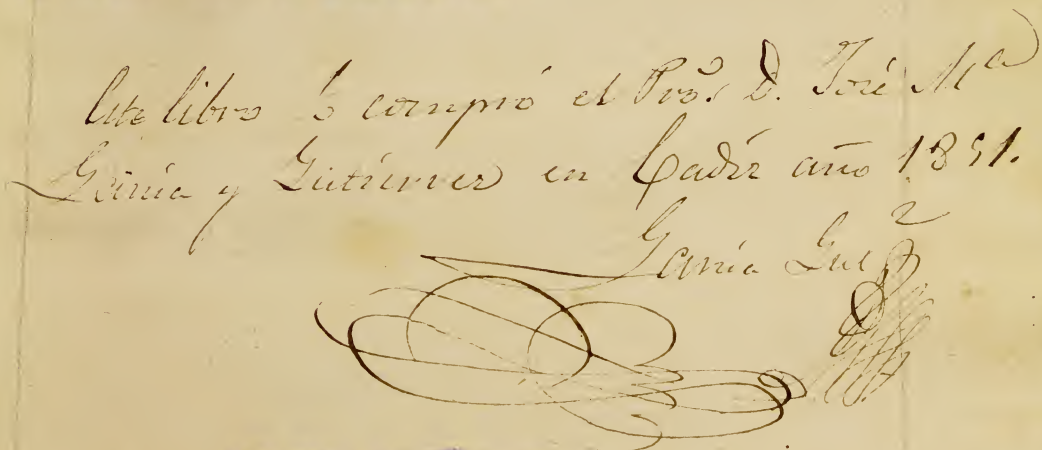 Este libro lo compró el Pro. D. José Mª
García y Gutierrez en Cadiz año 1851.
García Gutz